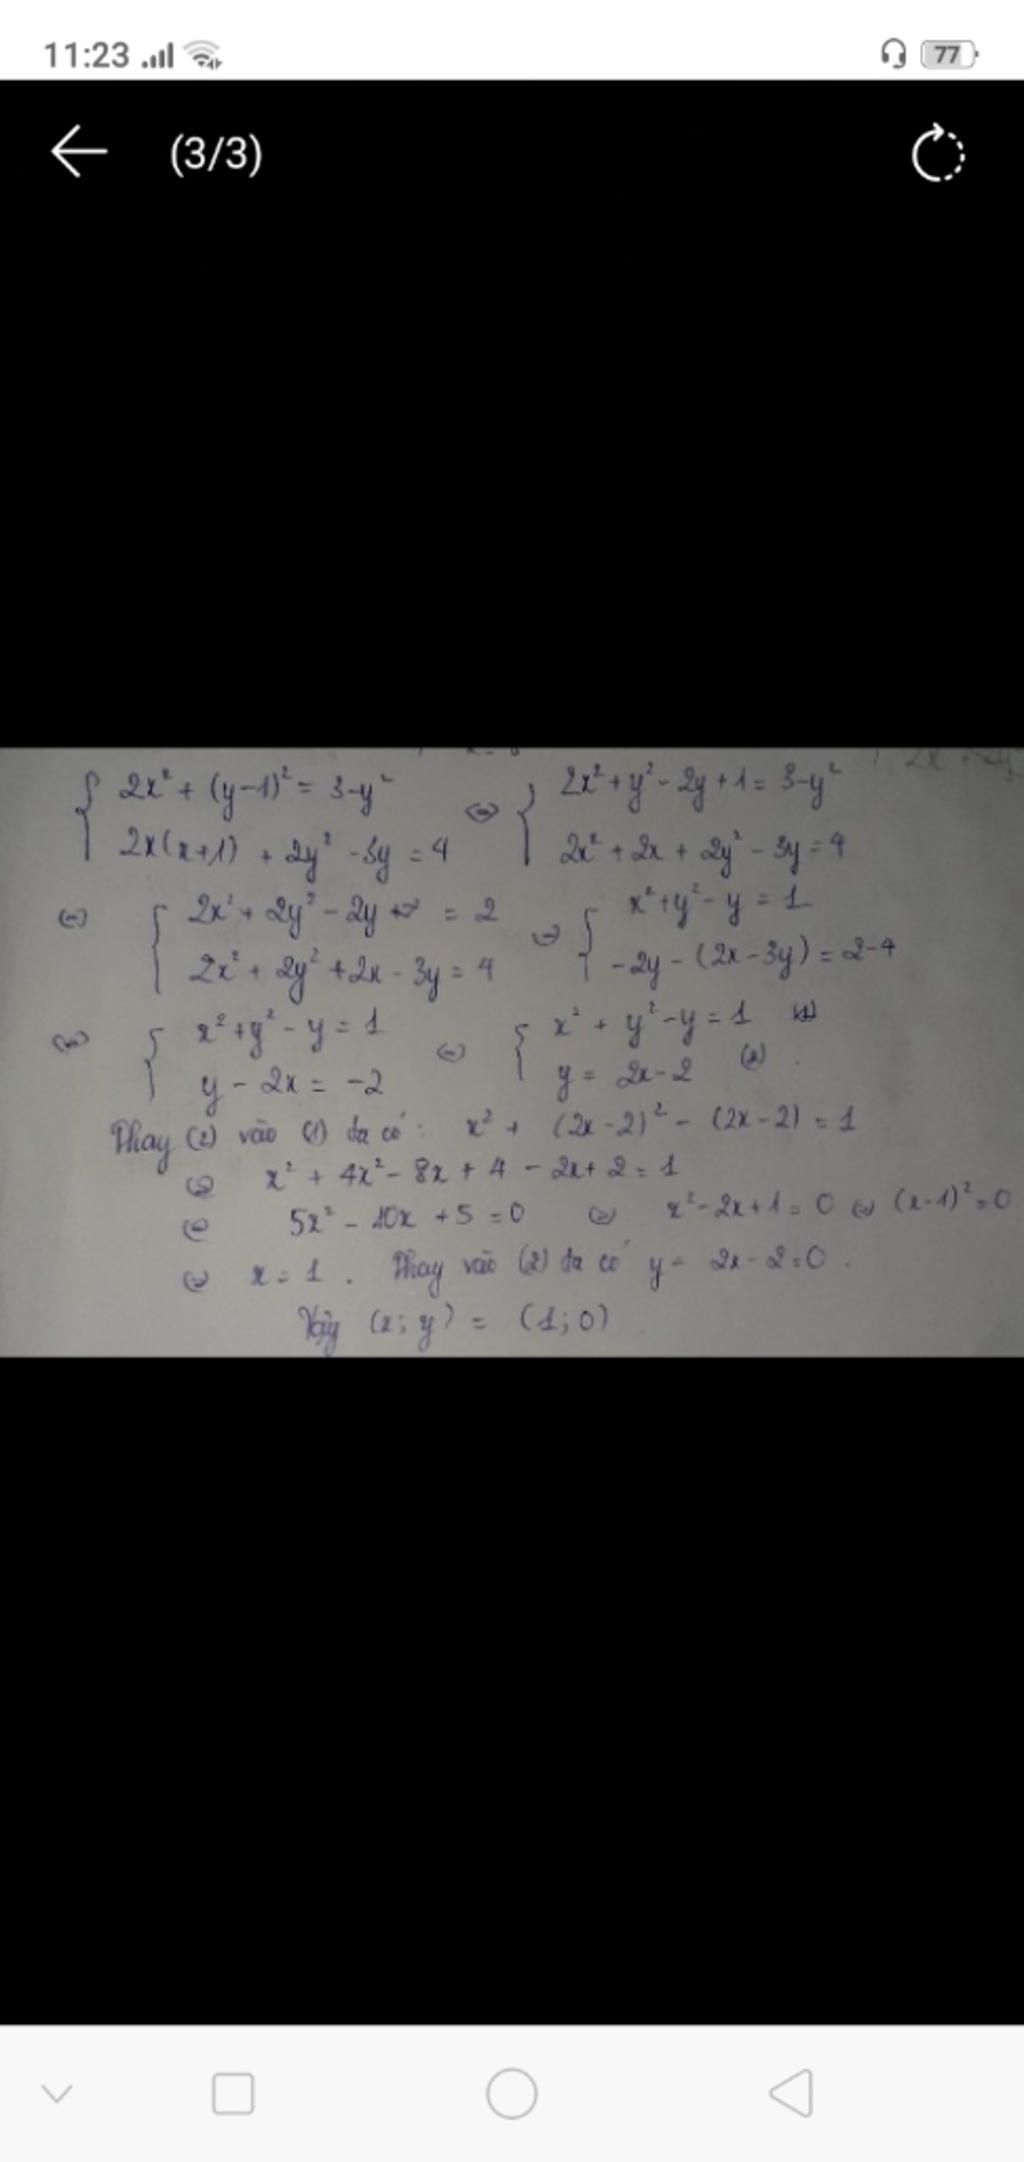 11:23
77
(3/3)
{ 2x² + (y-1)² = 3-y² ⇔ { 2x² + y² - 2y + 1 = 3-y²
2x(x+1) + 2y² - 3y = 4 2x² + 2x + 2y² - 3y = 4
⇔ { 2x² + 2y² - 2y = 2 ⇔ { x² + y² - y = 1
2x² + 2y² + 2x - 3y = 4 -2y - (2x-3y) = 2-4
⇔ { x² + y² - y = 1 ⇔ { x² + y² - y = 1 (1)
y - 2x = -2 y = 2x-2 (2)
Thay (2) vào (1) ta có: x² + (2x-2)² - (2x-2) = 1
⇔ x² + 4x² - 8x + 4 - 2x + 2 = 1
⇔ 5x² - 10x + 5 = 0 ⇔ x² - 2x + 1 = 0 ⇔ (x-1)² = 0
⇔ x = 1. Thay vào (2) ta có y = 2x-2 = 0.
Vậy (x; y) = (1; 0)